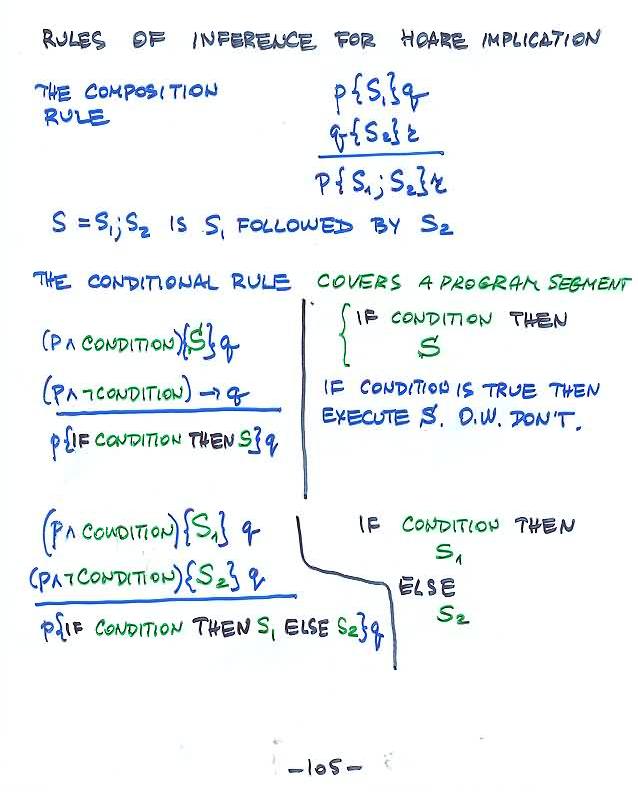 RULES OF INFERENCE FOR HOARE IMPLICATION
THE COMPOSITION RULE
p{S₁}q
q{S₂}r
p{S₁;S₂}r
S = S₁;S₂ IS S₁ FOLLOWED BY S₂
THE CONDITIONAL RULE COVERS A PROGRAM SEGMENT
(P∧CONDITION){S}q
(P∧¬CONDITION)→q
p{IF CONDITION THEN S}q
{IF CONDITION THEN
S
IF CONDITION IS TRUE THEN
EXECUTE S. O.W. DON'T.
(P∧CONDITION){S₁} q
(P∧¬CONDITION){S₂} q
p{IF CONDITION THEN S₁ ELSE S₂}q
IF CONDITION THEN
S₁
ELSE
S₂
-105-